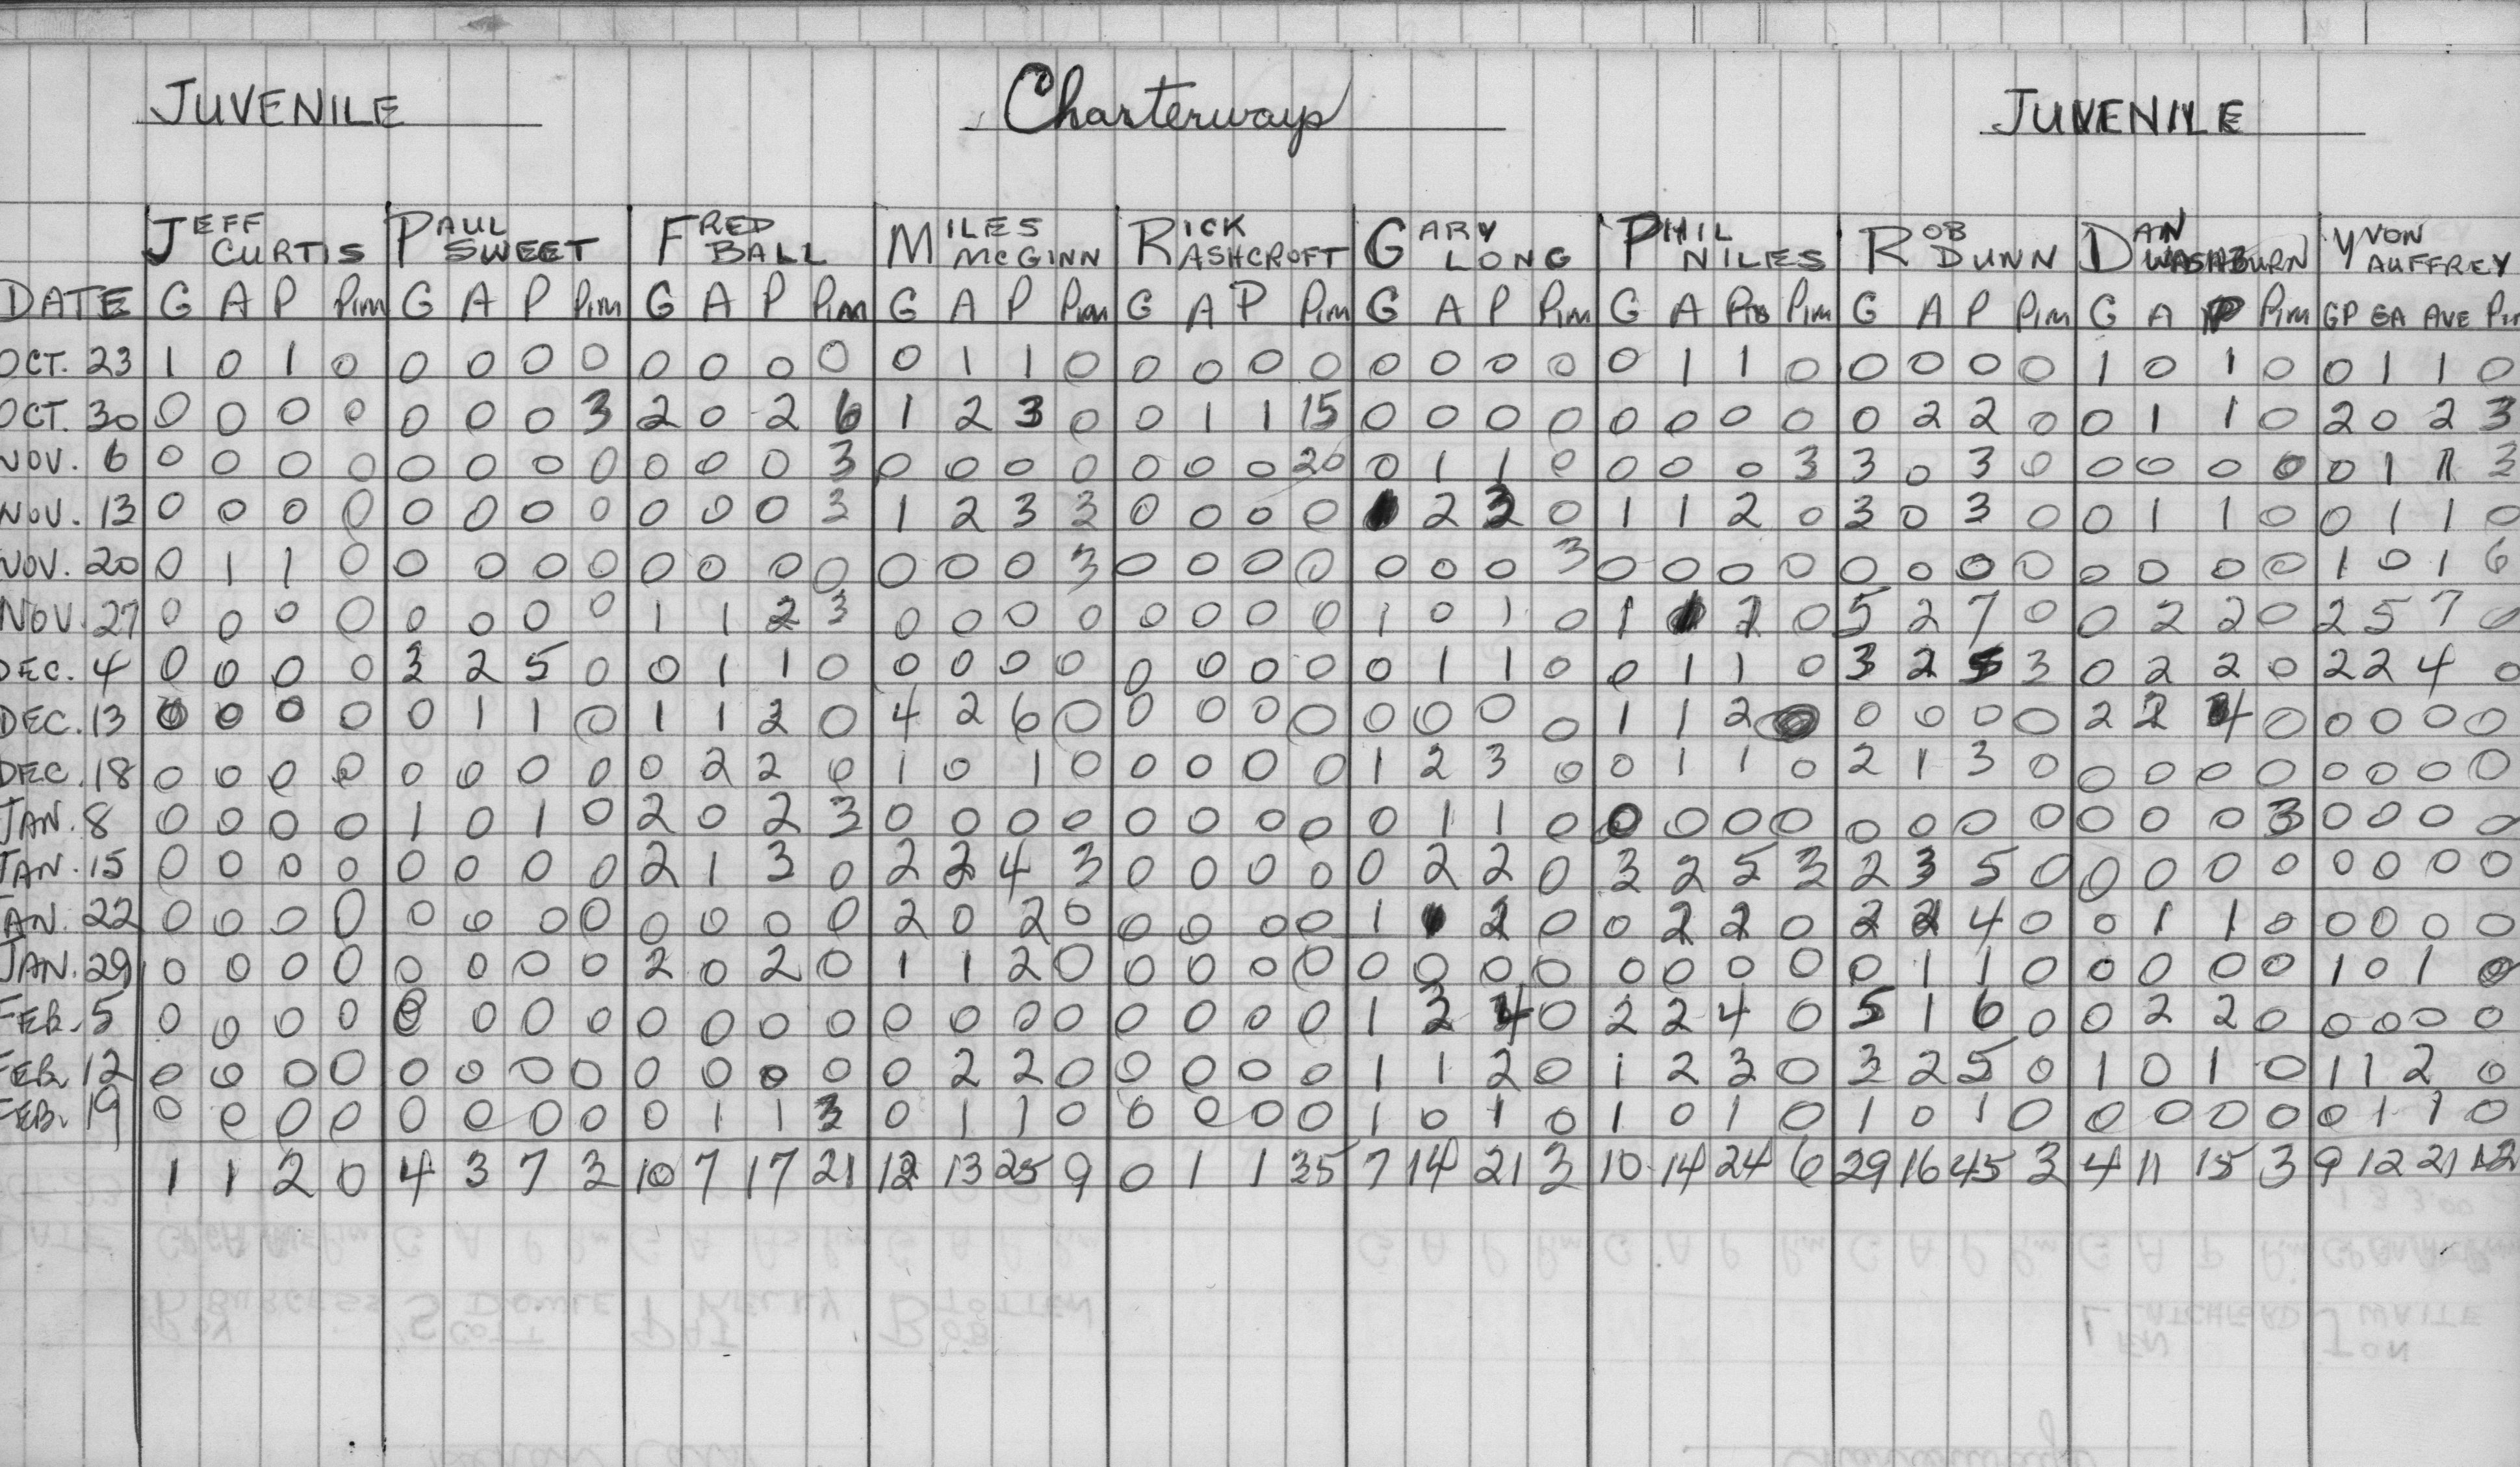 JUVENILE Charterways JUVENILE
JEFF CURTIS PAUL SWEET FRED BALL MILES MCGINN RICK ASHCROFT GARY LONG PHIL NILES ROB DUNN DAN WASHBURN YVON AUFFREY
DATE G A P Pim G A P Pim G A P Pim G A P Pim G A P Pim G A P Pim G A Pts Pim G A P Pim G A P Pim GP GA AVE Pim
OCT. 23 1 0 1 0 0 0 0 0 0 0 0 0 0 1 1 0 0 0 0 0 0 0 0 0 0 1 1 0 0 0 0 0 1 0 1 0 0 1 1 0
OCT. 30 0 0 0 0 0 0 0 3 2 0 2 6 1 2 3 0 0 1 1 15 0 0 0 0 0 0 0 0 0 2 2 0 0 1 1 0 2 0 2 3
NOV. 6 0 0 0 0 0 0 0 0 0 0 0 3 0 0 0 0 0 0 0 20 0 1 1 0 0 0 0 3 3 0 3 0 0 0 0 0 0 1 1 3
NOV. 13 0 0 0 0 0 0 0 0 0 0 0 3 1 2 3 3 0 0 0 0 1 2 3 0 1 1 2 0 3 0 3 0 0 1 1 0 0 1 1 0
NOV. 20 0 1 1 0 0 0 0 0 0 0 0 0 0 0 0 3 0 0 0 0 0 0 0 3 0 0 0 0 0 0 0 0 0 0 0 0 1 0 1 6
NOV. 27 0 0 0 0 0 0 0 0 1 1 2 3 0 0 0 0 0 0 0 0 1 0 1 0 1 1 2 0 5 2 7 0 0 2 2 0 2 5 7 0
DEC. 4 0 0 0 0 3 2 5 0 0 1 1 0 0 0 0 0 0 0 0 0 0 1 1 0 0 1 1 0 3 2 5 3 0 2 2 0 2 2 4 0
DEC. 13 0 0 0 0 0 1 1 0 1 1 2 0 4 2 6 0 0 0 0 0 0 0 0 0 1 1 2 0 0 0 0 0 2 2 4 0 0 0 0 0
DEC. 18 0 0 0 0 0 0 0 0 0 2 2 0 1 0 1 0 0 0 0 0 1 2 3 0 0 1 1 0 2 1 3 0 0 0 0 0 0 0 0 0
JAN. 8 0 0 0 0 1 0 1 0 2 0 2 3 0 0 0 0 0 0 0 0 0 1 1 0 0 0 0 0 0 0 0 0 0 0 0 3 0 0 0 0
JAN. 15 0 0 0 0 0 0 0 0 2 1 3 0 2 2 4 3 0 0 0 0 0 2 2 0 3 2 5 3 2 3 5 0 0 0 0 0 0 0 0 0
JAN. 22 0 0 0 0 0 0 0 0 0 0 0 0 2 0 2 0 0 0 0 0 1 1 2 0 0 2 2 0 2 2 4 0 0 1 1 0 0 0 0 0
JAN. 29 0 0 0 0 0 0 0 0 2 0 2 0 1 1 2 0 0 0 0 0 0 0 0 0 0 0 0 0 0 1 1 0 0 0 0 0 1 0 1 0
FEB. 5 0 0 0 0 0 0 0 0 0 0 0 0 0 0 0 0 0 0 0 0 1 3 4 0 2 2 4 0 5 1 6 0 0 2 2 0 0 0 0 0
FEB. 12 0 0 0 0 0 0 0 0 0 0 0 0 0 2 2 0 0 0 0 0 1 1 2 0 1 2 3 0 3 2 5 0 1 0 1 0 1 1 2 0
FEB. 19 0 0 0 0 0 0 0 0 0 1 1 3 0 1 1 0 0 0 0 0 1 0 1 0 1 0 1 0 1 0 1 0 0 0 0 0 0 1 1 0
1 1 2 0 4 3 7 3 10 7 17 21 12 13 25 9 0 1 1 35 7 14 21 3 10 14 24 6 29 16 45 3 4 11 15 3 9 12 21 12